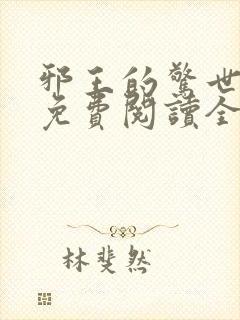 邪王的驚世
免費閱讀全
林斐然